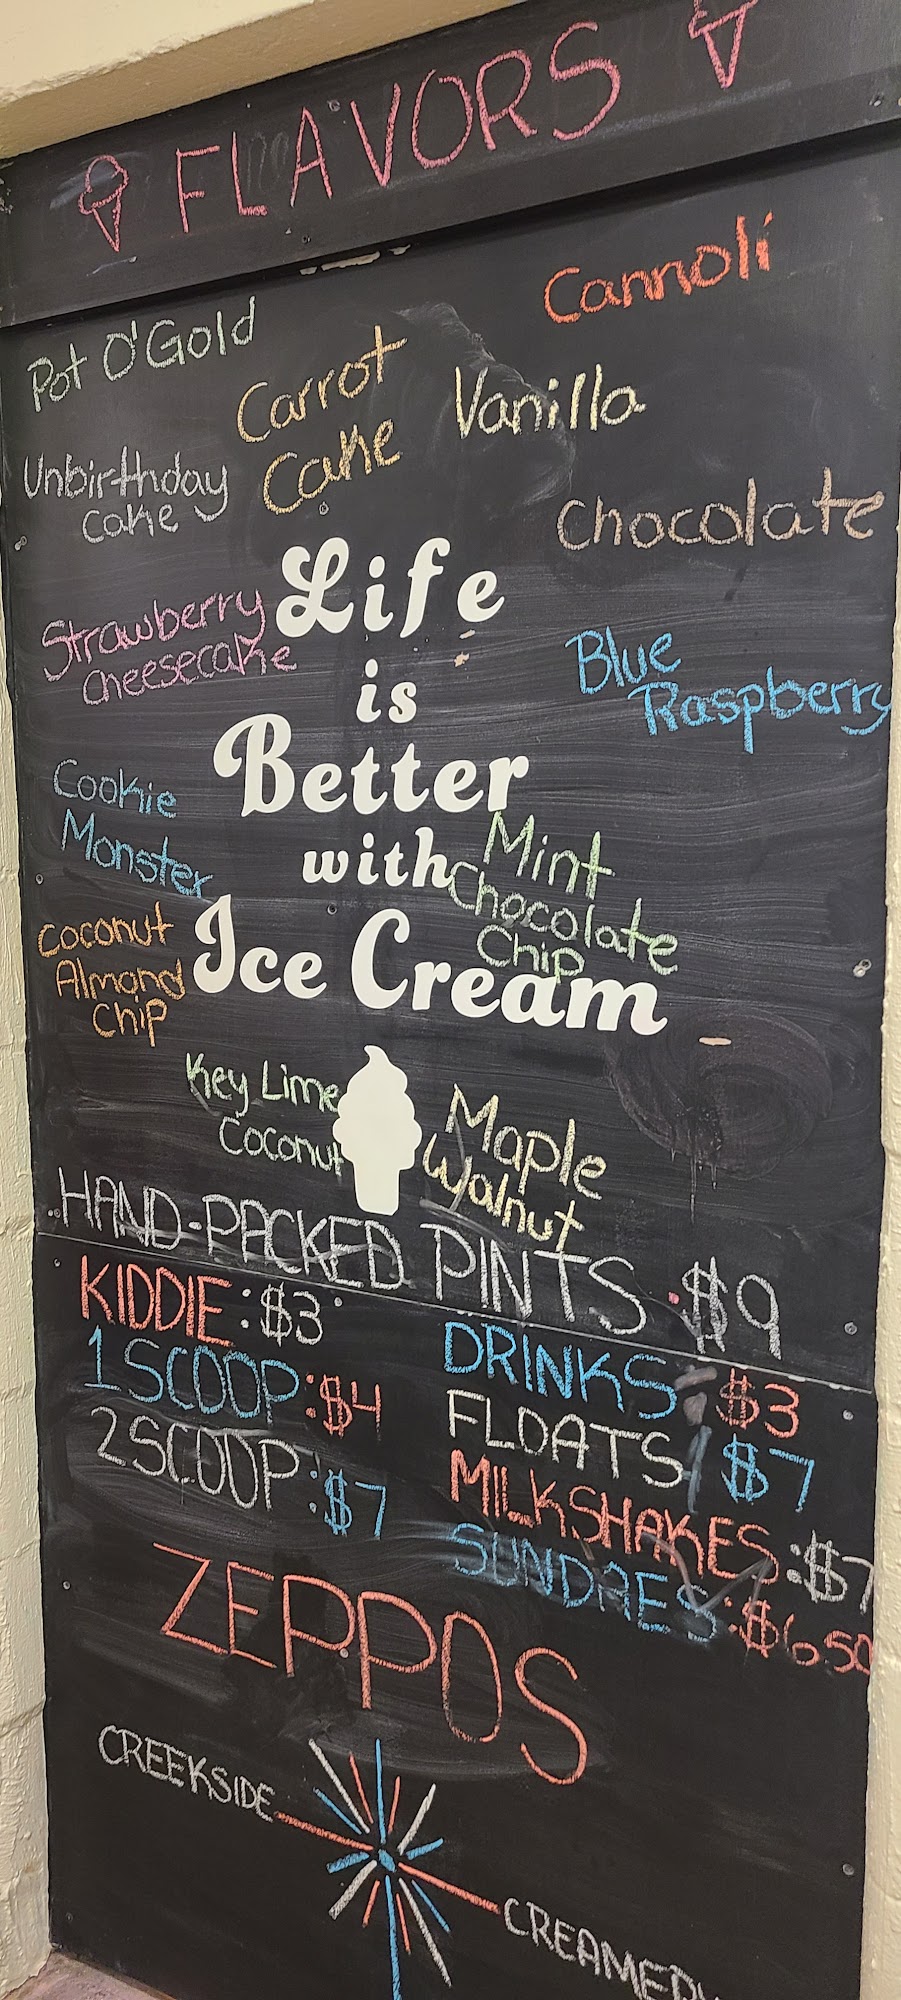 FLAVORS
Cannoli
Pot O'Gold
Carrot
Cake
Vanilla
Unbirthday
Cake
Chocolate
Life
is
Better
with
Ice Cream
Strawberry
Cheesecake
Blue
Raspberry
Cookie
Monster
Mint
Chocolate
Chip
Coconut
Almond
Chip
Key Lime
Coconut
Maple
Walnut
HAND-PACKED PINTS: $9
KIDDIE: $3
1 SCOOP: $4
2 SCOOP: $7
DRINKS: $3
FLOATS: $7
MILKSHAKES: $7
SUNDAES: $6.50
ZEPPOS
CREEKSIDE
CREAMERY